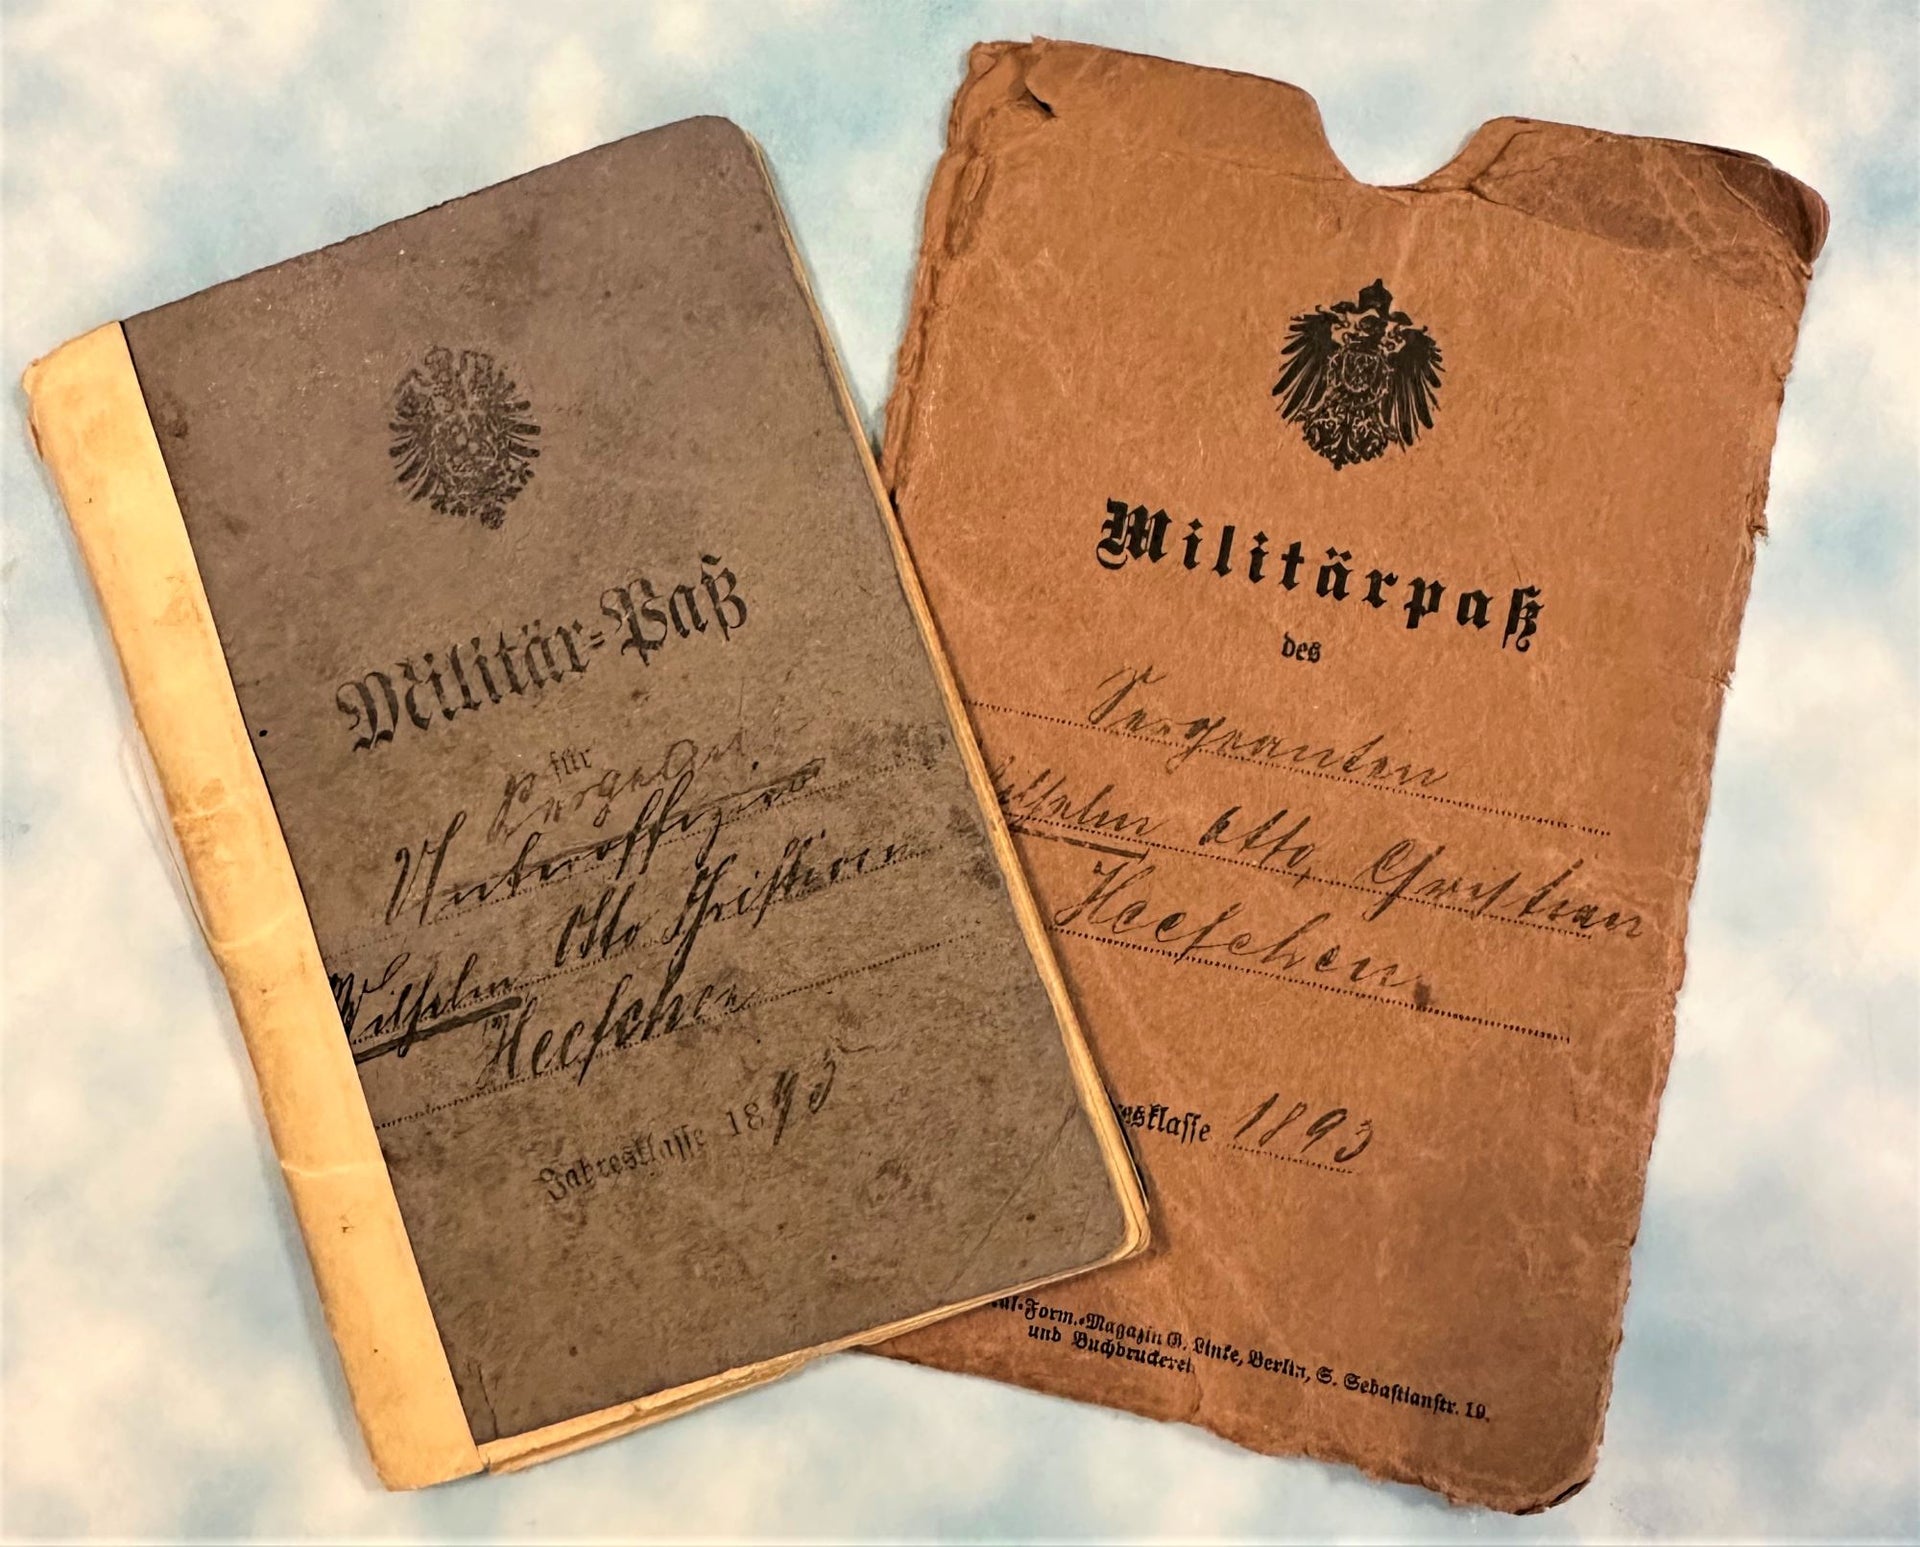 Militär-Paß
für
Sergeant
Unteroffizier
Wilhelm Otto Christian
Heeschen
Jahresklasse 1893
Militärpaß
des
Sergeanten
Wilhelm Otto, Christian
Heeschen
esklasse 1893
al-Form.-Magazin G. Linke, Berlin, S. Sebastianstr. 19.
und Buchdruckerei